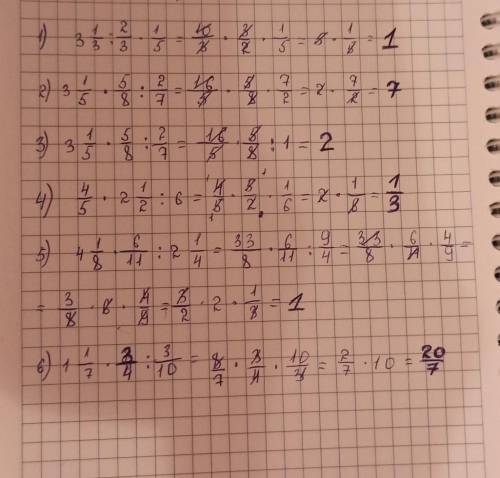 1) 3 1/3 : 2/3 · 1/5 = 10/3 · 3/2 · 1/5 = 5 · 1/5 = 1
2) 3 1/5 · 5/8 : 2/7 = 16/5 · 5/8 · 7/2 = 2 · 7/2 = 7
3) 3 1/5 · 5/8 : 2/7 = 16/5 · 5/8 : 1 = 2
4) 4/5 · 2 1/2 : 6 = 4/5 · 5/2 · 1/6 = 2 · 1/6 = 1/3
5) 4 1/8 · 6/11 : 2 1/4 = 33/8 · 6/11 : 9/4 = 33/8 · 6/11 · 4/9 =
= 3/8 · 6 · 4/9 = 3/2 · 2 · 1/3 = 1
6) 1 1/7 · 3/4 : 3/10 = 8/7 · 3/4 · 10/3 = 2/7 · 10 = 20/7